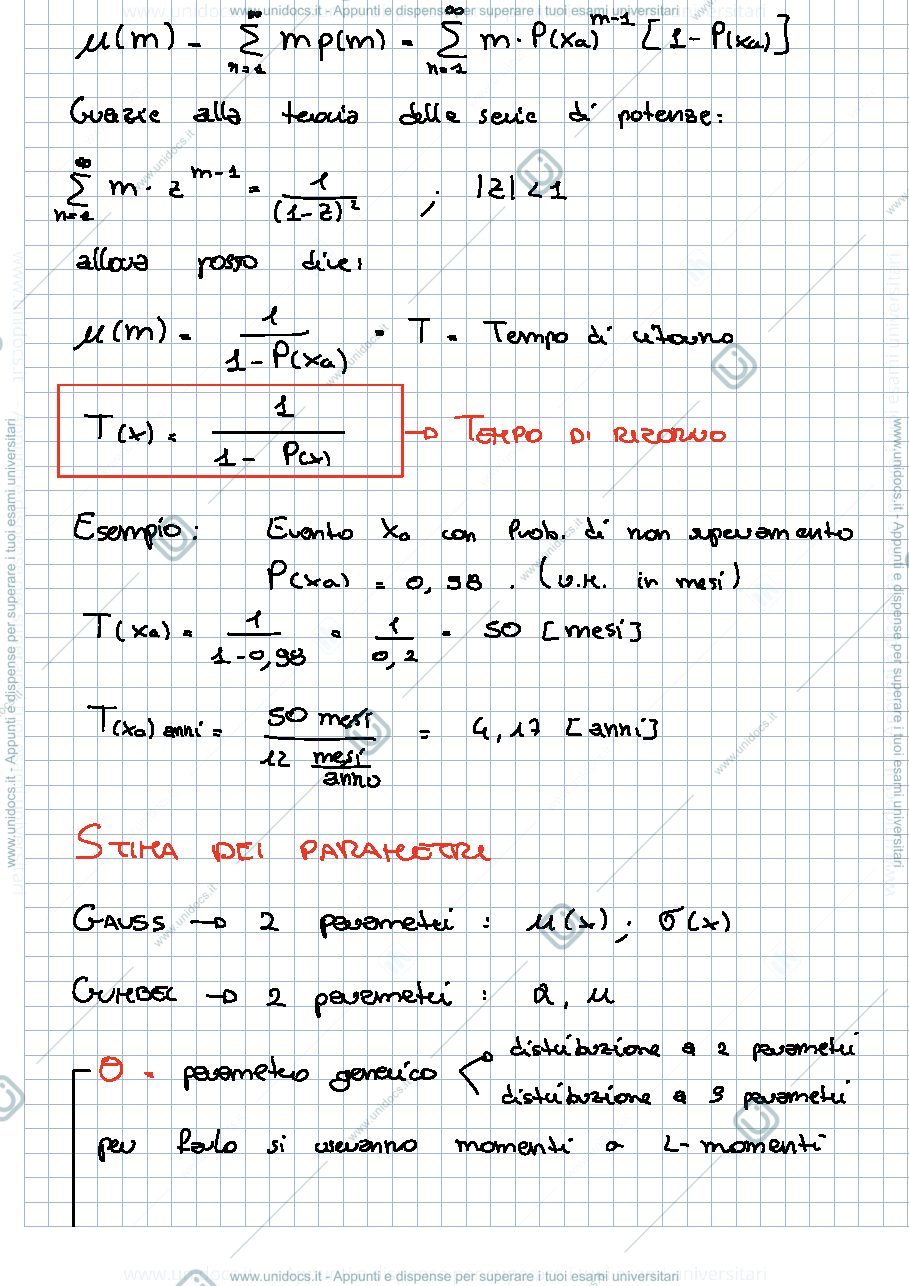 www.unidocs.it - Appunti e dispense per superare i tuoi esami universitari
μ(m) = ∞ Σ n=1 m p(m) = ∞ Σ n=1 m · P(xa)^m-1 [1 - P(xa)]
Grazie alla teoria delle serie di potenze:
∞ Σ n=1 m · z^m-1 = 1/(1-z)² ; |z| < 1
allora posso dire:
μ(m) = 1/(1 - P(xa)) = T = Tempo di ritorno
T(x) = 1/(1 - P(x)) → TEMPO DI RITORNO
Esempio: Evento xa con Prob. di non superamento
P(xa) = 0,98 . (u.m. in mesi)
T(xa) = 1/(1-0,98) = 1/0,2 = 50 [mesi]
T(xa) anni = 50 mesi/(12 mesi/anno) = 4,17 [anni]
STIMA DEI PARAMETRI
GAUSS → 2 parametri : μ(x) ; σ(x)
GUMBEL → 2 parametri : α, u
distribuzione a 2 parametri
θ = parametro generico
distribuzione a 3 parametri
per farlo si useranno momenti o L-momenti
www.unidocs.it - Appunti e dispense per superare i tuoi esami universitari